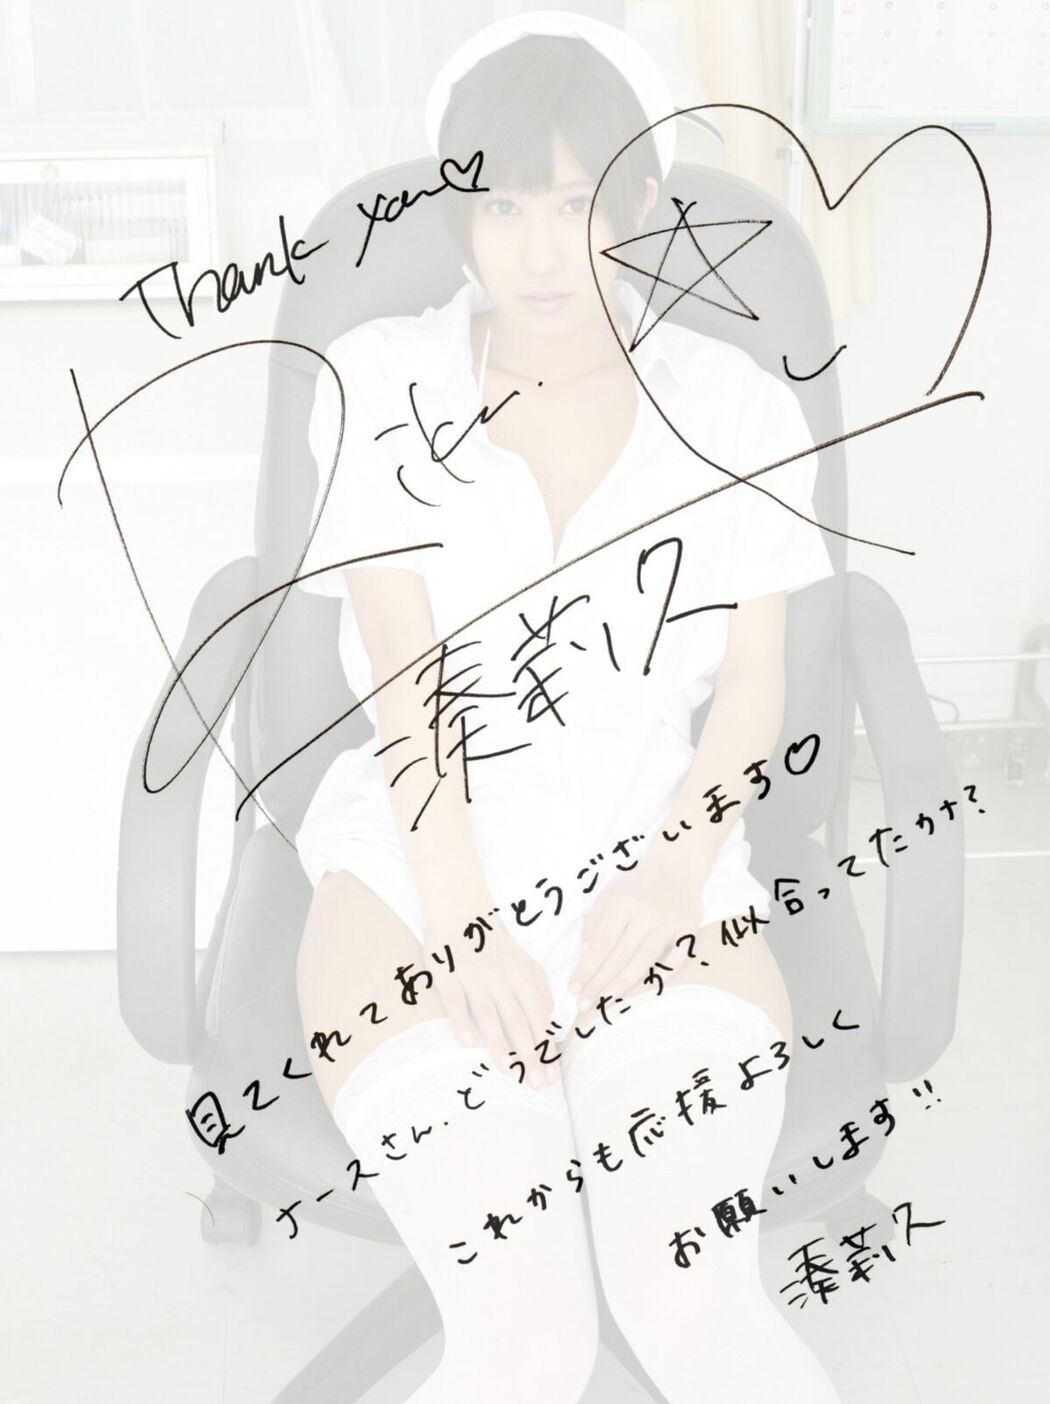 Thank you♡
Riku.
湊莉久
見てくれてありがとうございます♡
ナースさん.どうでしたか?似合ってたカナ?
これからも応援よろしく
お願いします!!
湊莉久